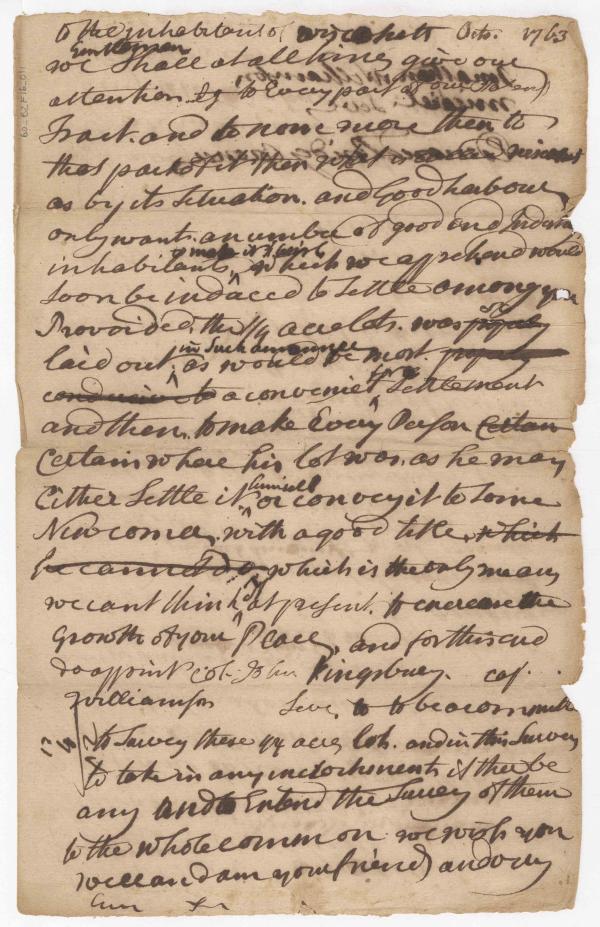 to the inhabitants of wiscasett Octo. 1763
Gentlemen
we Shall at all times give our
attention to Every part of our
Tract. and to none more then to
that part of it
as by its Situation. and Good harbour
only wants a number of good and
make it thrive
inhabitants, which we apprehend would
Soon be induaced to Settle among you
Provoided the 1/4 acre lots. was
in Such a manner
laid out. as would be most. properly
for a
conducive to a conveniet Settlement
and then. to make Every Person Certain
Certain where his lot was. as he may
himself
Either Settle it or convey it to Some
New comer, with a good title, which
He cannot do, which is the only means
we cant think of at present. to encrease the
Growth of your Place, and for this end
do appint Col. John Kingsbury. cap.
Williamson to be a committe
to Survey these 1/4 acre, lots. and in this Survey
to take in any incrochments if ther be
any and to Extend the Survey of them
to the whole common we wish you
well and am your friend, and very